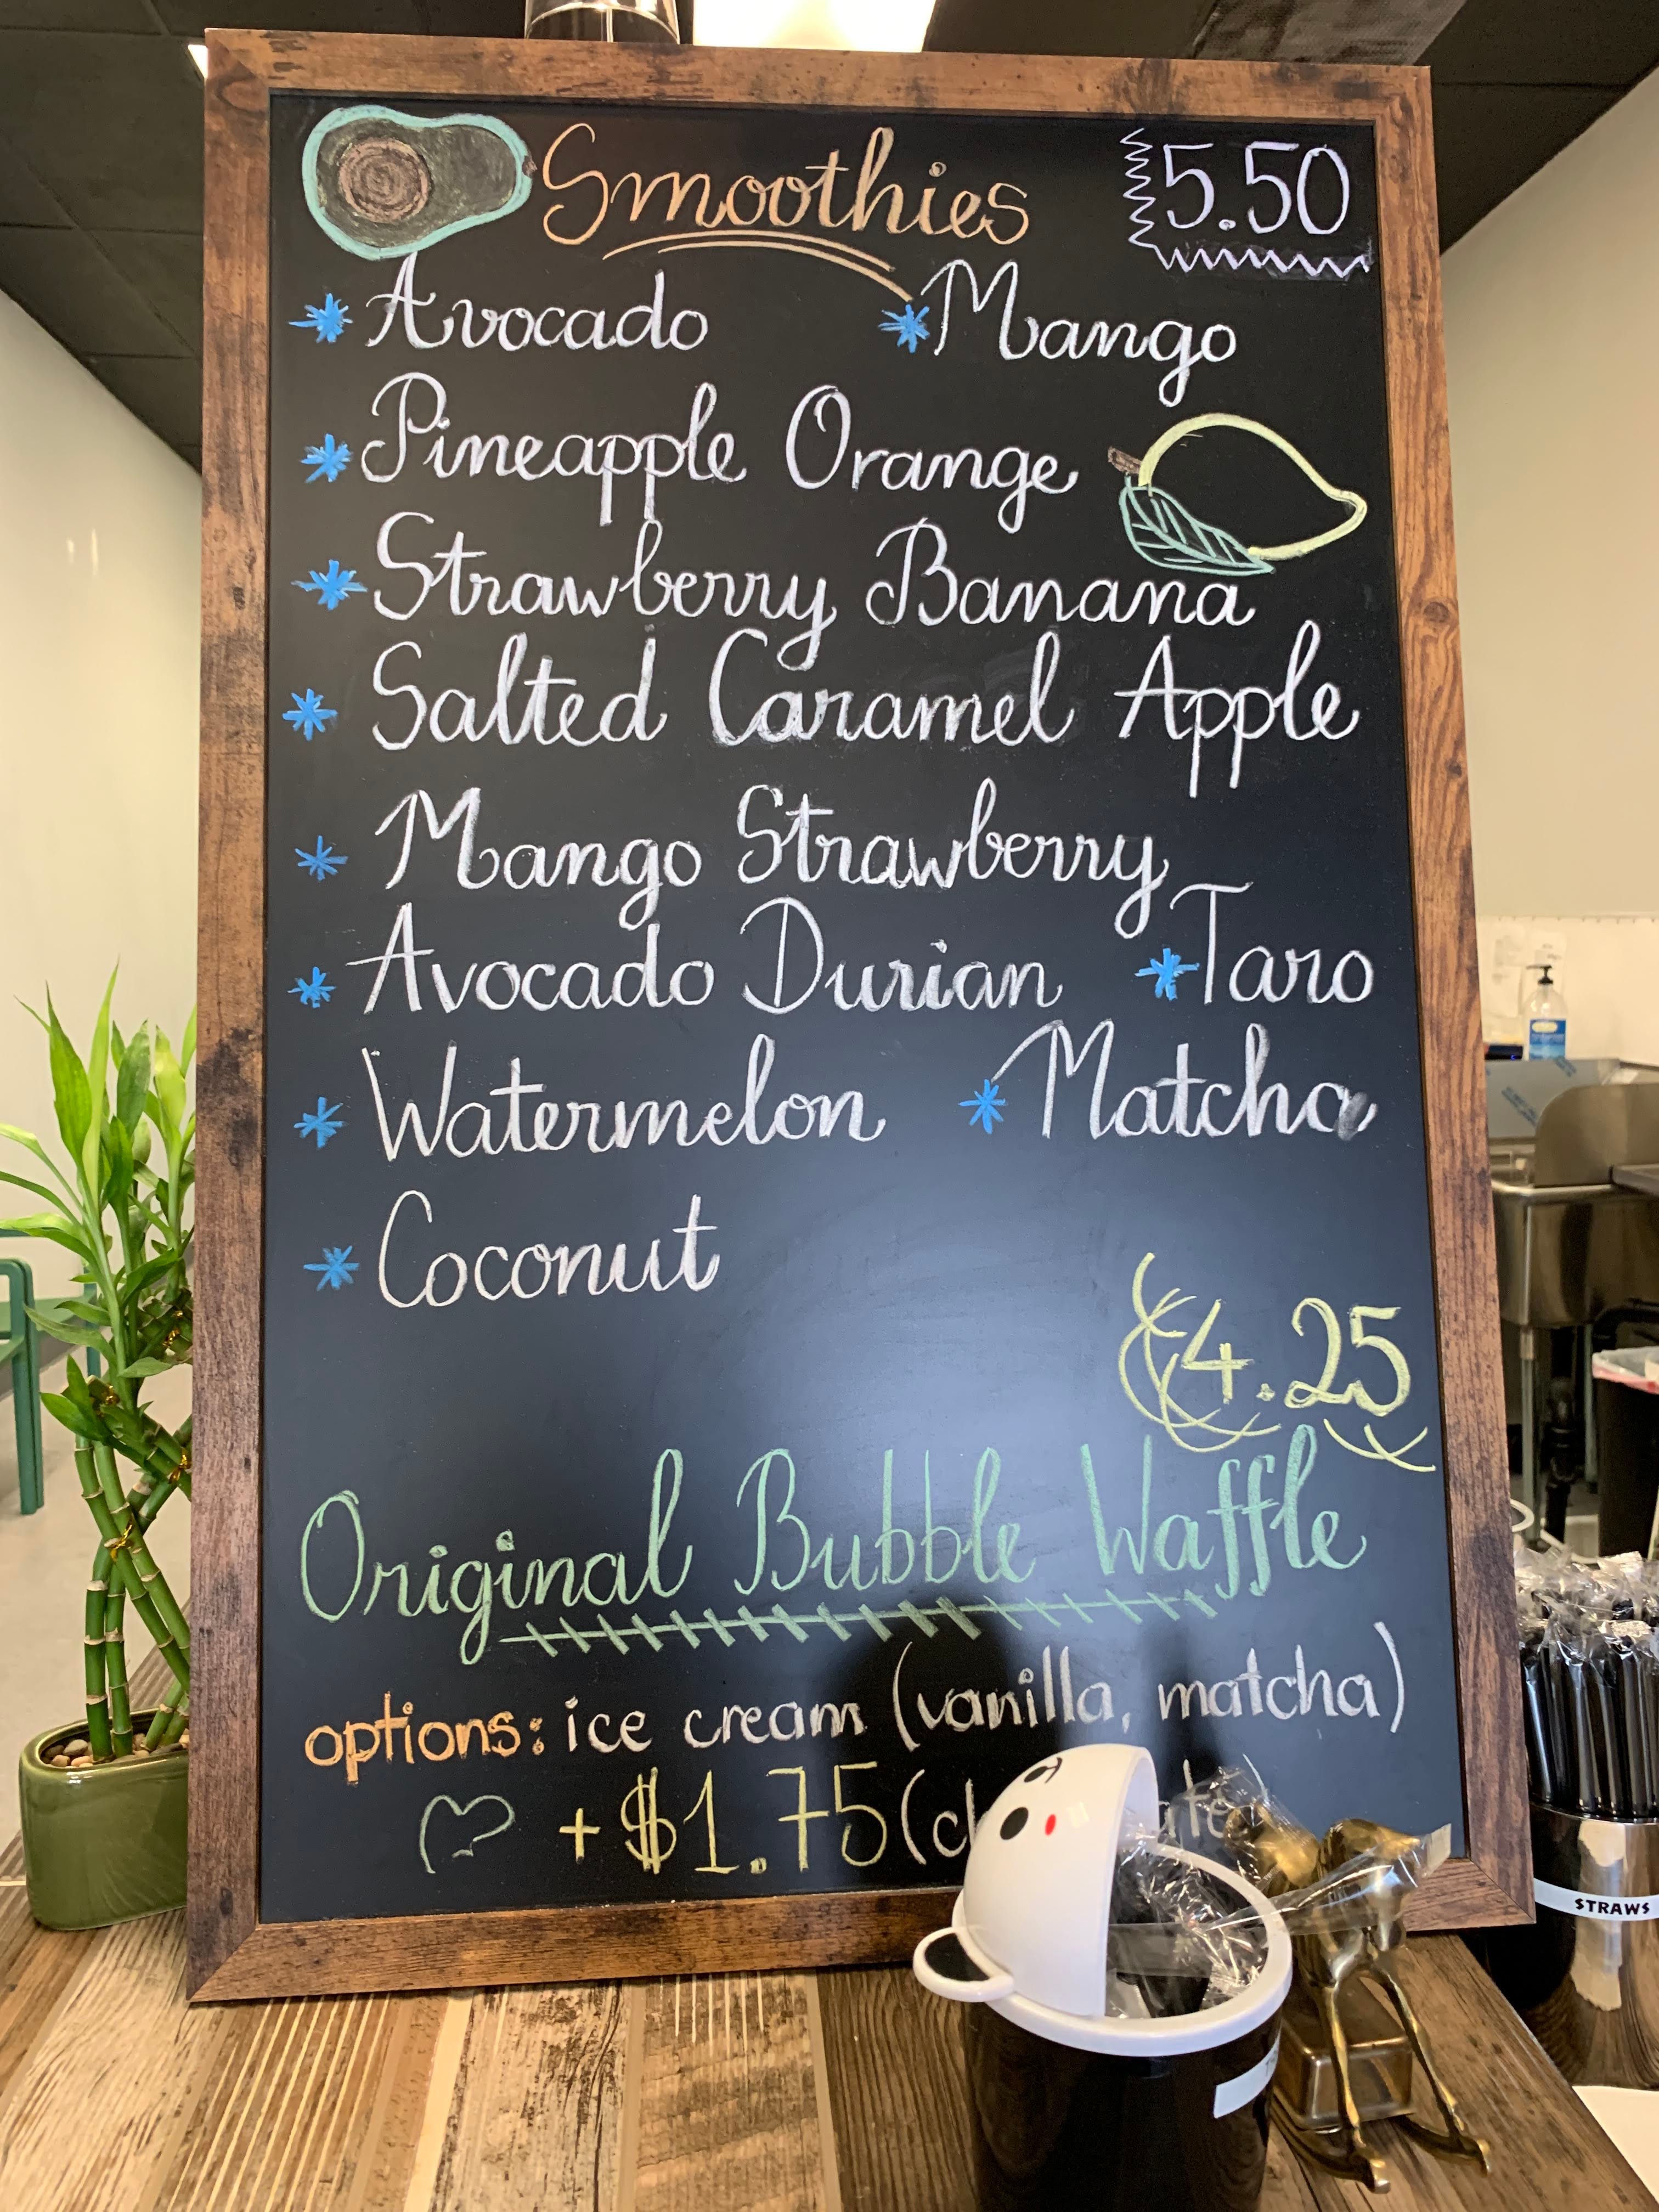 Smoothies 5.50
* Avocado * Mango
* Pineapple Orange
* Strawberry Banana
* Salted Caramel Apple
* Mango Strawberry
* Avocado Durian * Taro
* Watermelon * Matcha
* Coconut
4.25
Original Bubble Waffle
options: ice cream (vanilla, matcha)
+ $1.75
STRAWS